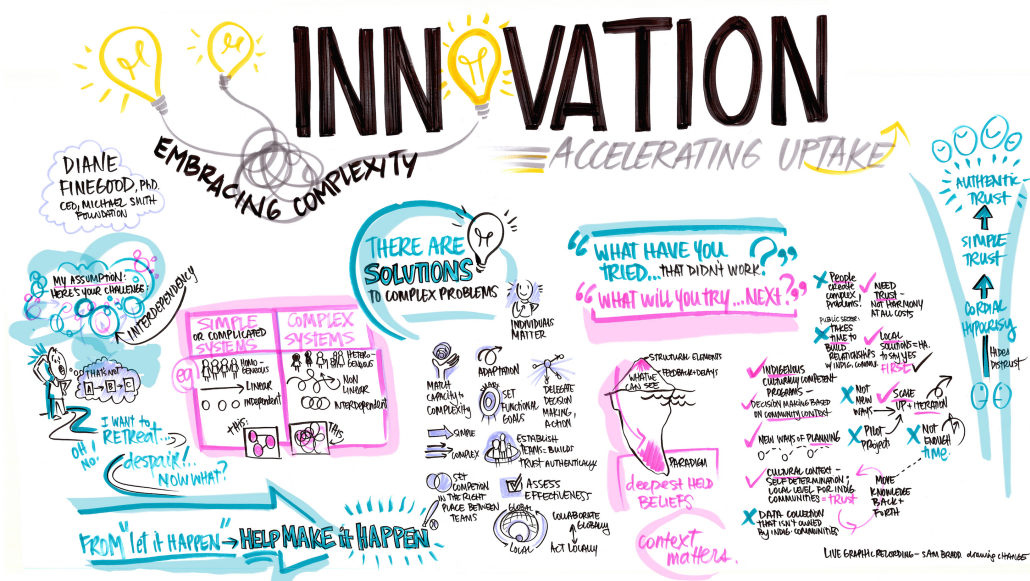 INNOVATION
EMBRACING COMPLEXITY
ACCELERATING UPTAKE
DIANE
FINEGOOD, PhD.
CEO, MICHAEL SMITH
FOUNDATION
MY ASSUMPTION:
HERE'S YOUR CHALLENGE:
INTERDEPENDENCY
THAT'S NOT
A → B → C
OH!
NO!
I WANT TO
RETREAT...
despair!..
NOW WHAT?
FROM "let it HAPPEN" → HELP MAKE it HAPPEN!
SIMPLE
OR COMPLICATED
SYSTEMS
COMPLEX
SYSTEMS
eg
HOMO-
GENEOUS
LINEAR
INDEPENDENT
HETERO-
GENEOUS
NON
LINEAR
INTERDEPENDENT
THIS:
THIS
THERE ARE
SOLUTIONS
TO COMPLEX PROBLEMS
INDIVIDUALS
MATTER
MATCH
CAPACITY TO
COMPLEXITY
ADAPTATION
SET
FUNCTIONAL
GOALS
DELEGATE
DECISION
MAKING,
ACTION
SIMPLE
COMPLEX
ESTABLISH
TEAMS: BUILD
TRUST AUTHENTICALLY
SET
COMPETITION
IN THE RIGHT
PLACE BETWEEN
TEAMS
ASSESS
EFFECTIVENESS
GLOBAL
LOCAL
COLLABORATE
GLOBALLY
ACT LOCALLY
"WHAT HAVE YOU
TRIED... THAT DIDN'T WORK?"
"WHAT WILL YOU TRY... NEXT?"
STRUCTURAL ELEMENTS
FEEDBACK + DELAYS
WHAT WE
CAN SEE
PARADIGM
deepest HELD
BELIEFS
context
matters.
PEOPLE
CREATE
COMPLEX
PROBLEMS.
NEED
TRUST -
NOT HARMONY
AT ALL COSTS
PUBLIC SECTOR:
TAKES
TIME TO
BUILD
RELATIONSHIPS
LOCAL
SOLUTIONS
TO SAY YES
FIRST
INDIGENOUS
CULTURALLY COMPETENT
PROGRAMS -
DECISION MAKING BASED
ON COMMUNITY CONTEXT
NOT
NEW
WAYS
SCALE
UP + ITERATION
NEW WAYS OF PLANNING
PILOT
PROJECT
NOT
ENOUGH
time.
CULTURAL CONTEXT -
SELF DETERMINATION;
LOCAL LEVEL FOR INDIG.
COMMUNITIES = TRUST
MORE
KNOWLEDGE
BACK +
FORTH
DATA COLLECTION
THAT ISN'T OWNED
BY INDIG. COMMUNITIES
AUTHENTIC
TRUST
SIMPLE
TRUST
CORDIAL
HYPOCRISY
HIDE
DISTRUST
LIVE GRAPHIC RECORDING - SAM BRADD. drawing CHANGE